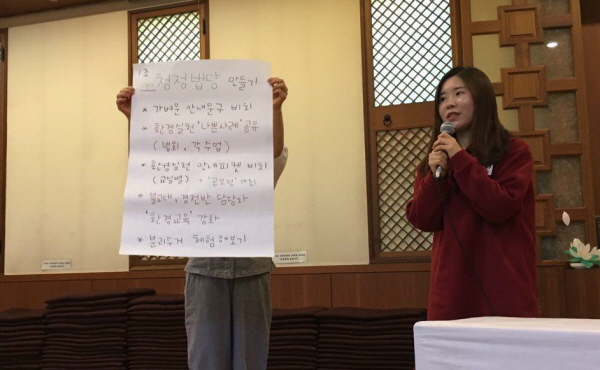 1조
청정법당 만들기
* 가벼운 안내문구 비치
* 환경실천 '나쁜사례' 공유
(법회, 각 수업)
* 환경실천 안내피켓 비치
(교실별) → '공모전' 개최
* 불교대, 경전반 담당자
'환경교육' 강화
* 분리수거 체험 해보기